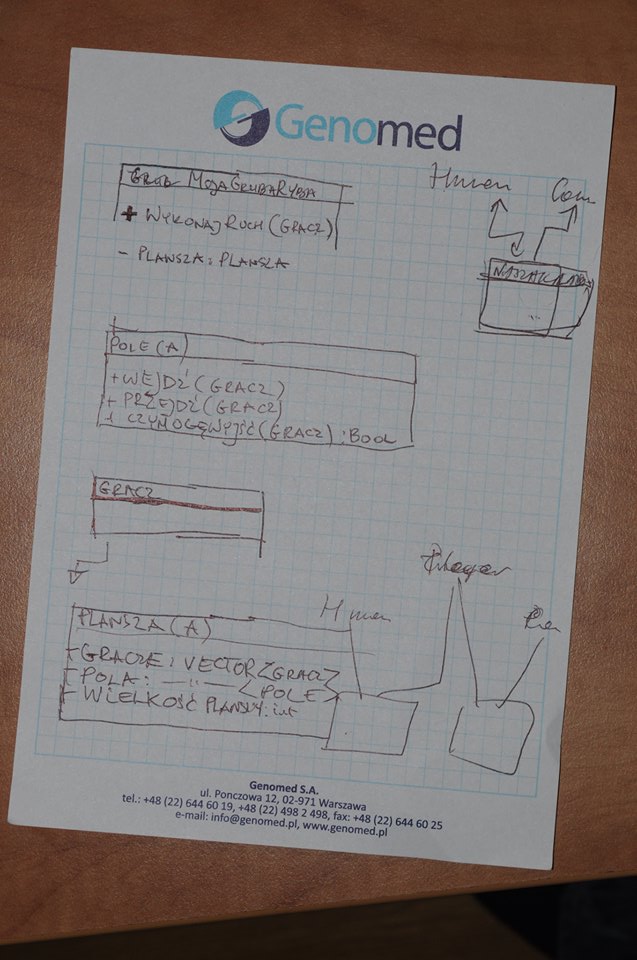 Genomed
MOJAGRUBARYBA
+ WYKONAJ RUCH (GRACZ)
- PLANSZA: PLANSZA
Human
POLE (A)
+ WEJDŹ (GRACZ)
+ PRZEJDŹ (GRACZ)
+ CZYMOGĘWYJŚĆ (GRACZ) : BOOL
GRACZ
Human
PLANSZA (A)
- GRACZE: VECTOR<GRACZ>
- POLA: —"— <POLE>
- WIELKOŚĆ PLANSZY: int
Genomed S.A.
ul. Ponczowa 12, 02-971 Warszawa
tel.: +48 (22) 644 60 19, +48 (22) 498 2 498, fax: +48 (22) 644 60 25
e-mail: info@genomed.pl, www.genomed.pl